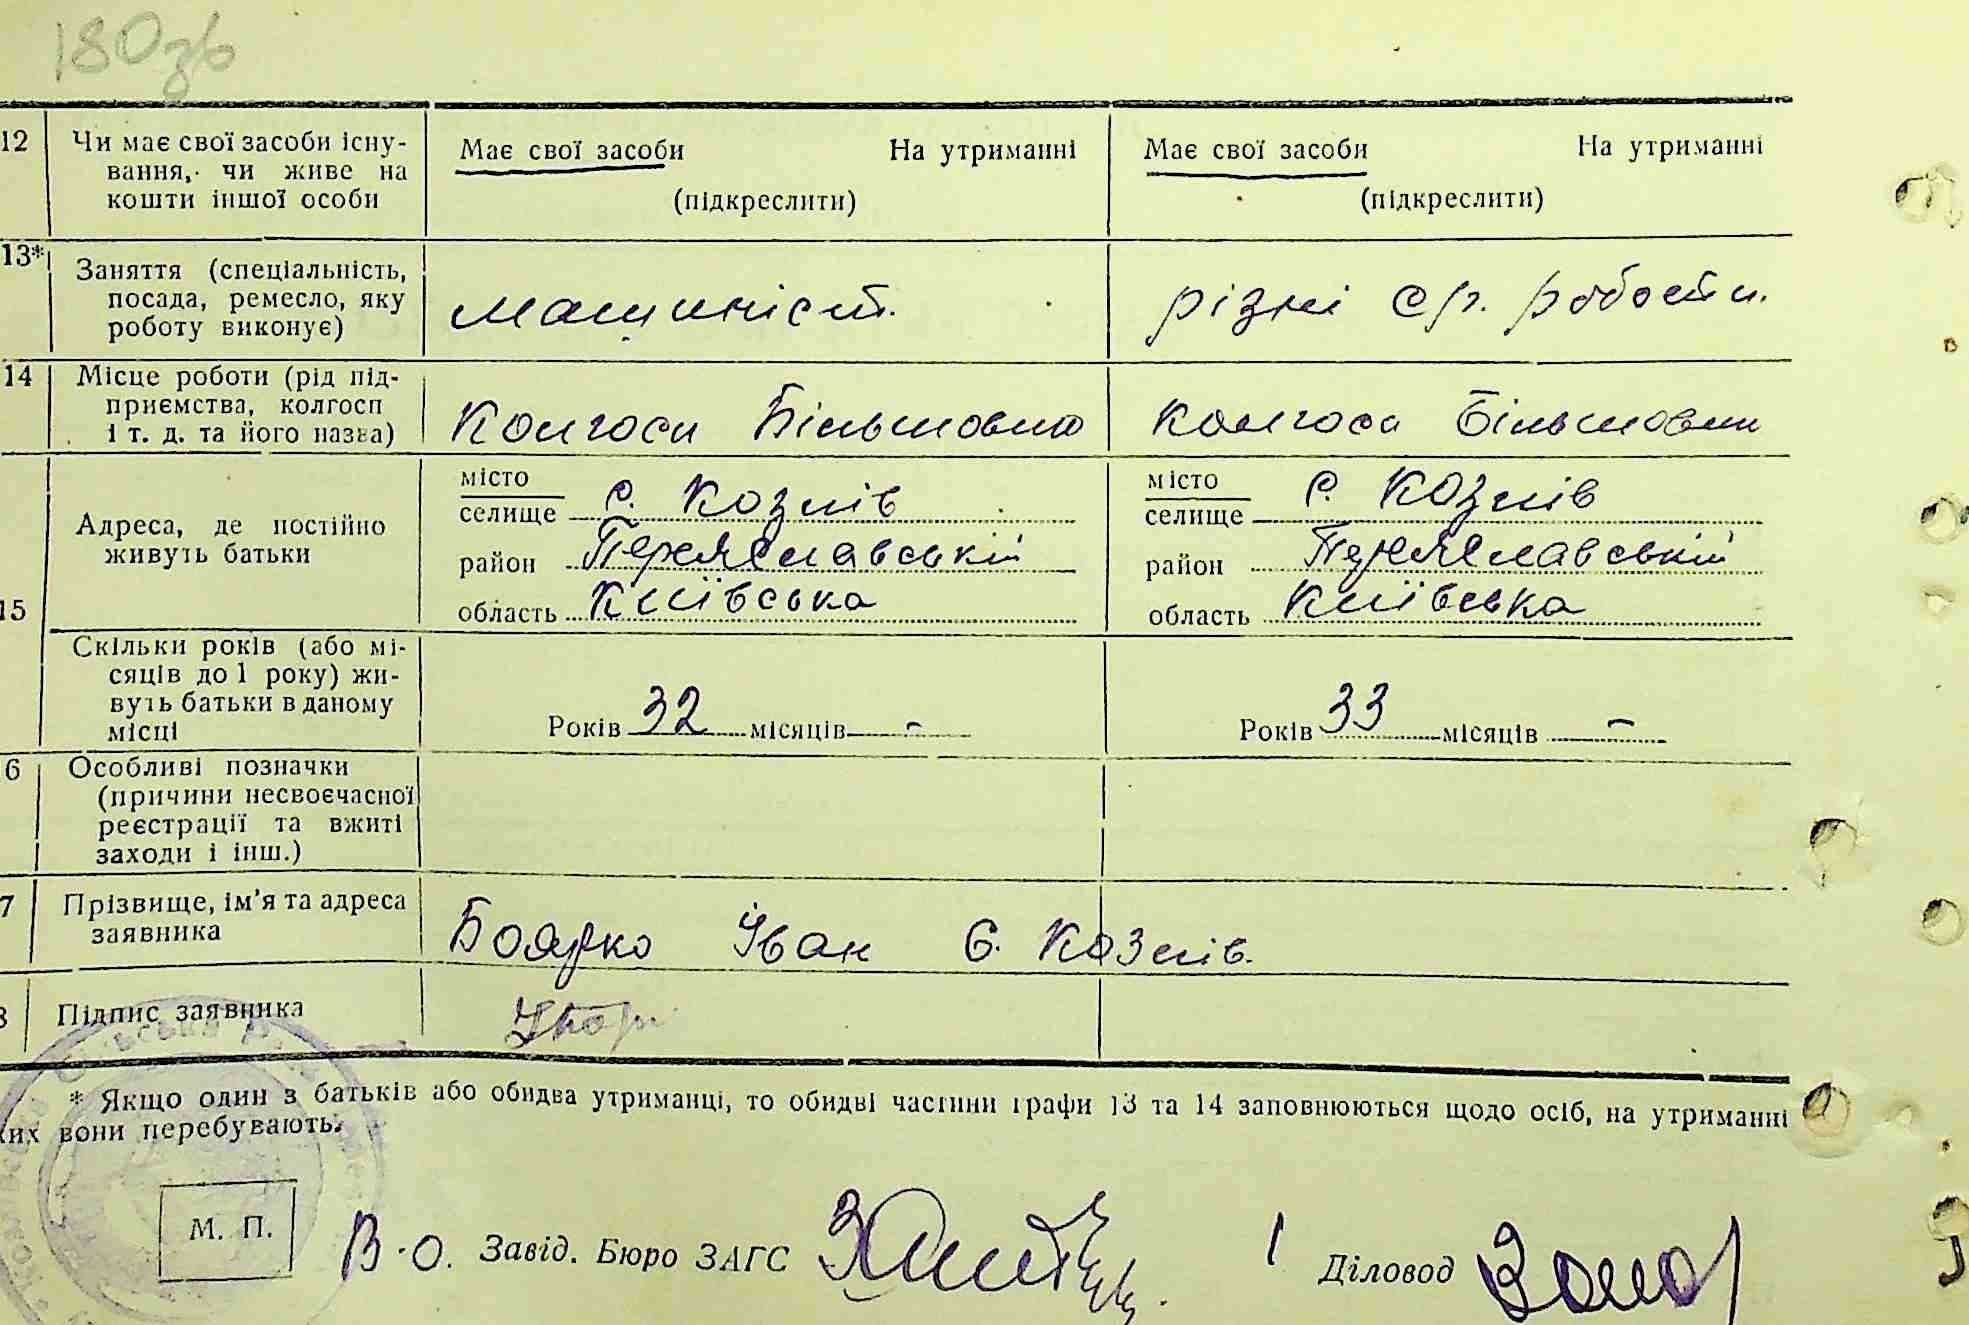 180зв
12 Чи має свої засоби існу-
вання, чи живе на
кошти іншої особи
Має свої засоби На утриманні
(підкреслити)
Має свої засоби На утриманні
(підкреслити)
13* Заняття (спеціальність,
посада, ремесло, яку
роботу виконує)
машиніст.
різні ср. роботи.
14 Місце роботи (рід під-
приємства, колгосп
і т. д. та його назва)
Колгосп Більшовик
Колгосп Більшовик
15 Адреса, де постійно
живуть батьки
місто
селище с. Козлів
район Переяславській
область Київська
місто
селище с. Козлів
район Переяславській
область Київська
Скільки років (або мі-
сяців до 1 року) жи-
вуть батьки в даному
місці
Років 32 місяців -
Років 33 місяців -
6 Особливі позначки
(причини несвоєчасної
реєстрації та вжиті
заходи і інш.)
7 Прізвище, ім'я та адреса
заявника
Боярко Іван с. Козлів.
8 Підпис заявника
* Якщо один з батьків або обидва утриманці, то обидві частини графи 13 та 14 заповнюються щодо осіб, на утриманні
ких вони перебувають.
М. П.
В.О. Завід. Бюро ЗАГС
Діловод